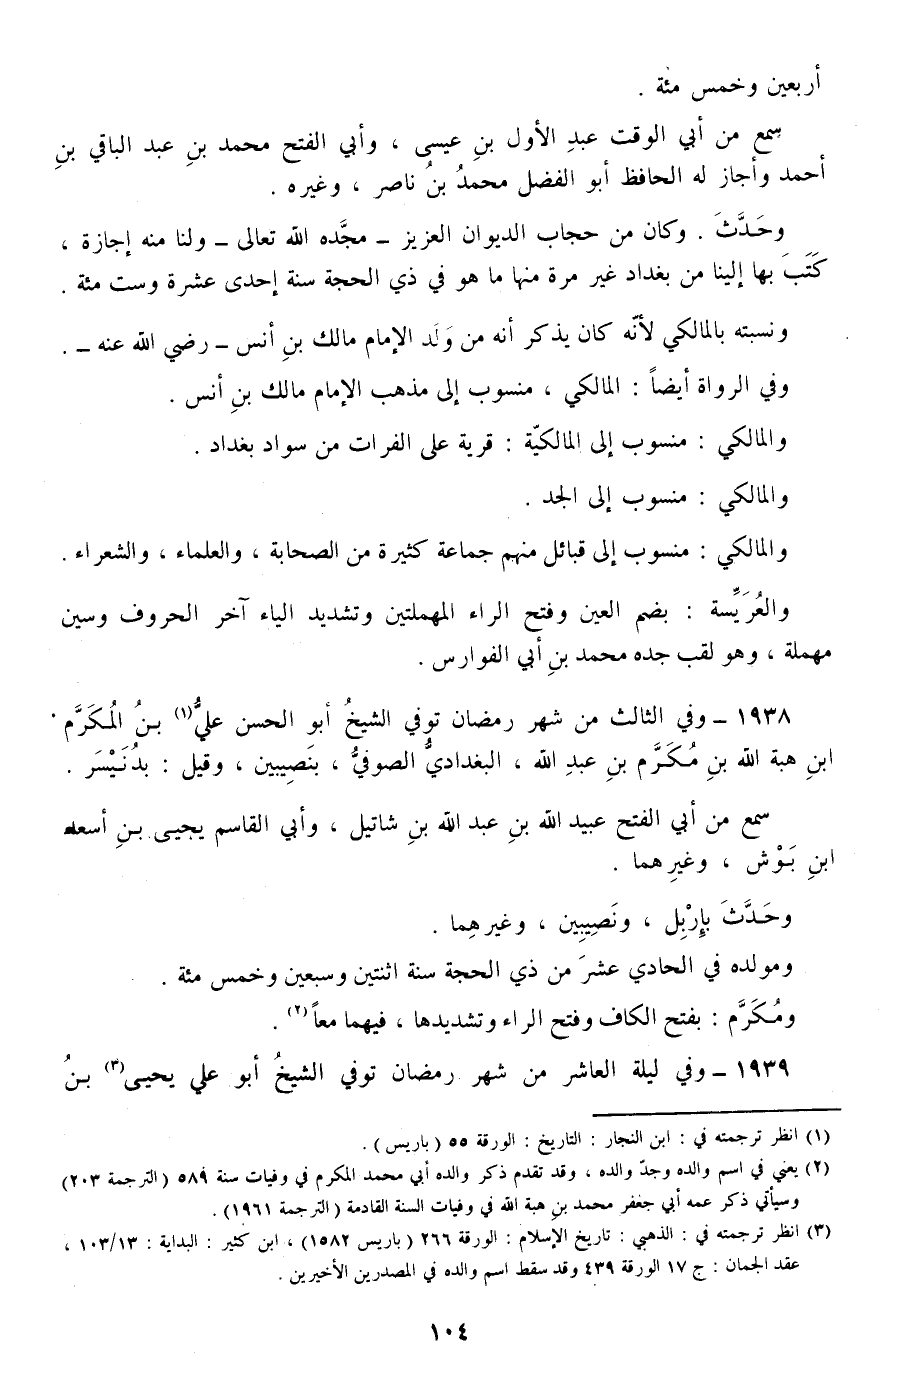 أربعين وخمس مئة .
سمع من أبي الوقت عبدِ الأول بنِ عيسى ، وأبي الفتح محمد بنِ عبد الباقي بنِ
أحمد وأجاز له الحافظ أبو الفضل محمدُ بنُ ناصر ، وغيره .
وحَدَّثَ . وكان من حجاب الديوان العزيز ــ مجَّده الله تعالى ــ ولنا منه إجازة ،
كَتَبَ بها إلينا من بغداد غير مرة منها ما هو في ذي الحجة سنة إحدى عشرة وست مئة .
ونسبته بالمالكي لأنّه كان يذكر أنه من وَلَد الإمام مالك بنِ أنس ــ رضي الله عنه ــ .
وفي الرواة أيضاً : المالكي ، منسوب إلى مذهب الإمام مالك بنِ أنس .
والمالكي : منسوب إلى المالكيّة : قرية على الفرات من سواد بغداد .
والمالكي : منسوب إلى الجد .
والمالكي : منسوب إلى قبائل منهم جماعة كثيرة من الصحابة ، والعلماء ، والشعراء .
والعُرَيِّسة : بضم العين وفتح الراء المهملتين وتشديد الياء آخر الحروف وسين
مهملة ، وهو لقب جده محمد بنِ أبي الفوارس .
١٩٣٨ ــ وفي الثالث من شهر رمضان توفي الشيخُ أبو الحسن عليُّ(١) بنُ المُكَرَّم
ابنِ هبة الله بنِ مُكَرَّم بنِ عبدِ الله ، البغداديُّ الصوفيُّ ، بنَصِيبين ، وقيل : بدُنَيْسَر .
سمع من أبي الفتح عبيد الله بنِ عبد الله بنِ شاتيل ، وأبي القاسم يحيى بنِ أسعد
ابنِ بَوْش ، وغيرِهما .
وحَدَّثَ بإِرْبِل ، ونَصِيبِين ، وغيرهِما .
ومولده في الحادي عشرَ من ذي الحجة سنة اثنتين وسبعين وخمس مئة .
ومُكَرَّم : بفتح الكاف وفتح الراء وتشديدها ، فيهما معاً(٢) .
١٩٣٩ ــ وفي ليلة العاشر من شهر رمضان توفي الشيخُ أبو علي يحيى(٣) بنُ
(١) انظر ترجمته في : ابن النجار : التاريخ : الورقة ٥٥ ( باريس ) .
(٢) يعني في اسم والده وجدّ والده ، وقد تقدم ذكر والده أبي محمد المكرم في وفيات سنة ٥٨٩ ( الترجمة ٢٠٣ )
وسيأتي ذكر عمه أبي جعفر محمد بنِ هبة الله في وفيات السنة القادمة ( الترجمة ١٩٦١ ) .
(٣) انظر ترجمته في : الذهبي : تاريخ الإسلام : الورقة ٢٦٦ ( باريس ١٥٨٢ ) ، ابن كثير : البداية : ١٠٣/١٣ ،
عقد الجمان : ج ١٧ الورقة ٤٣٩ وقد سقط اسم والده في المصدرين الأخيرين .
١٠٤